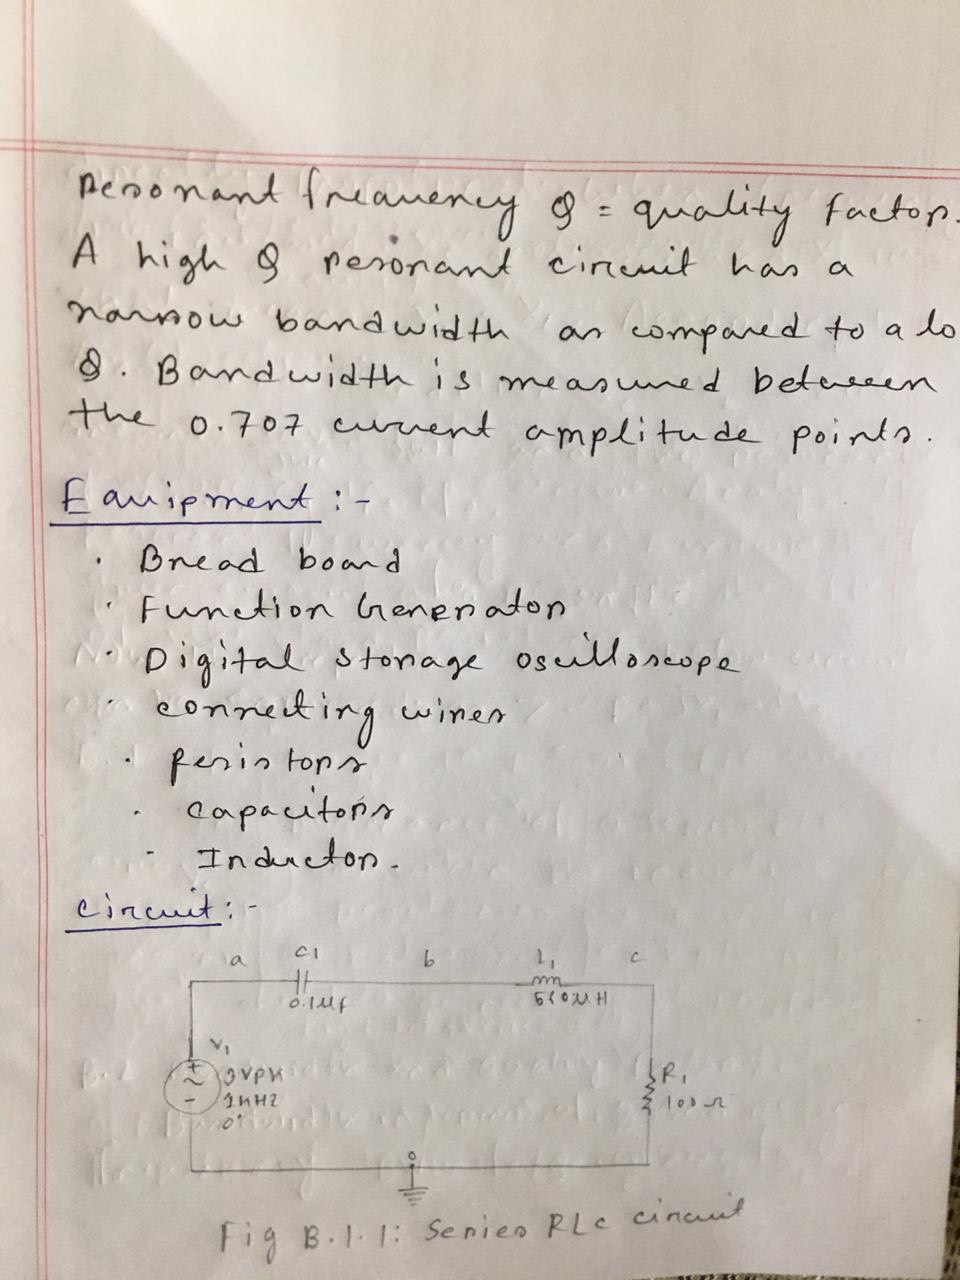 Resonant frequency Q = quality factor.
A high Q resonant circuit has a
narrow bandwidth as compared to a lo
Q. Bandwidth is measured between
the 0.707 current amplitude points.
Equipment :-
· Bread board
· Function Generator
· Digital storage oscilloscope
· connecting wires
· Resistors
· capacitors
· Inductor.
circuit :-
a C1 b L1 c
0.1μf
V1
+ ~ -
1KHz
0°
R1
100Ω
0
Fig B.1.1: Series RLC circuit